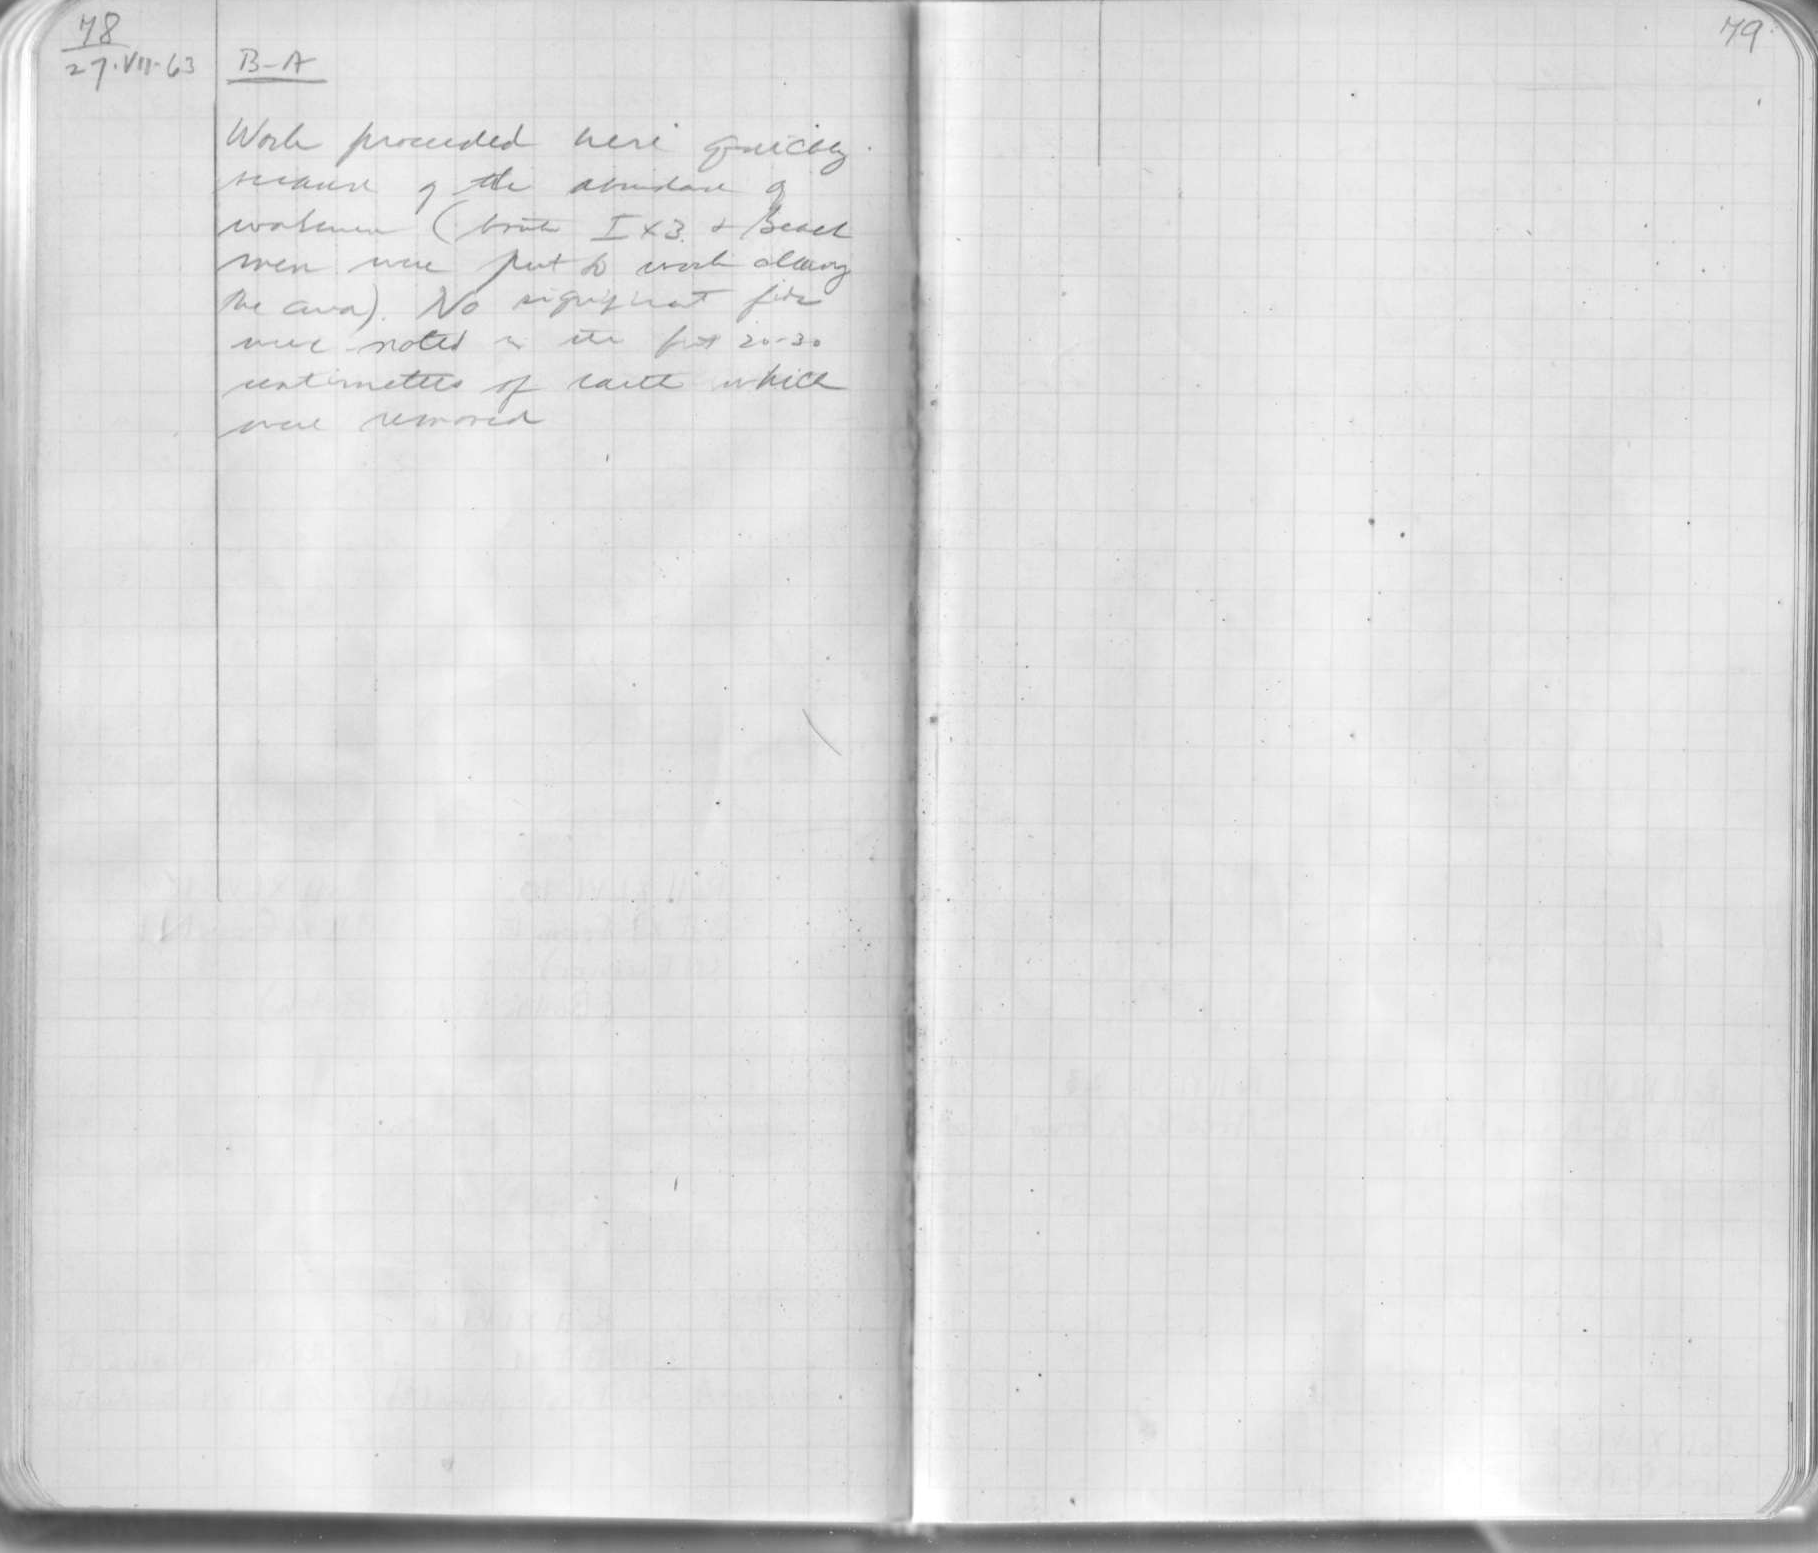 78
27·VII·63
B-A
Work proceeded here quickly
because of the abundance of
workmen (both I x 3 + Beach
men were put to work clearing
the area). No significant finds
were noted in the first 20-30
centimeters of earth which
were removed
79